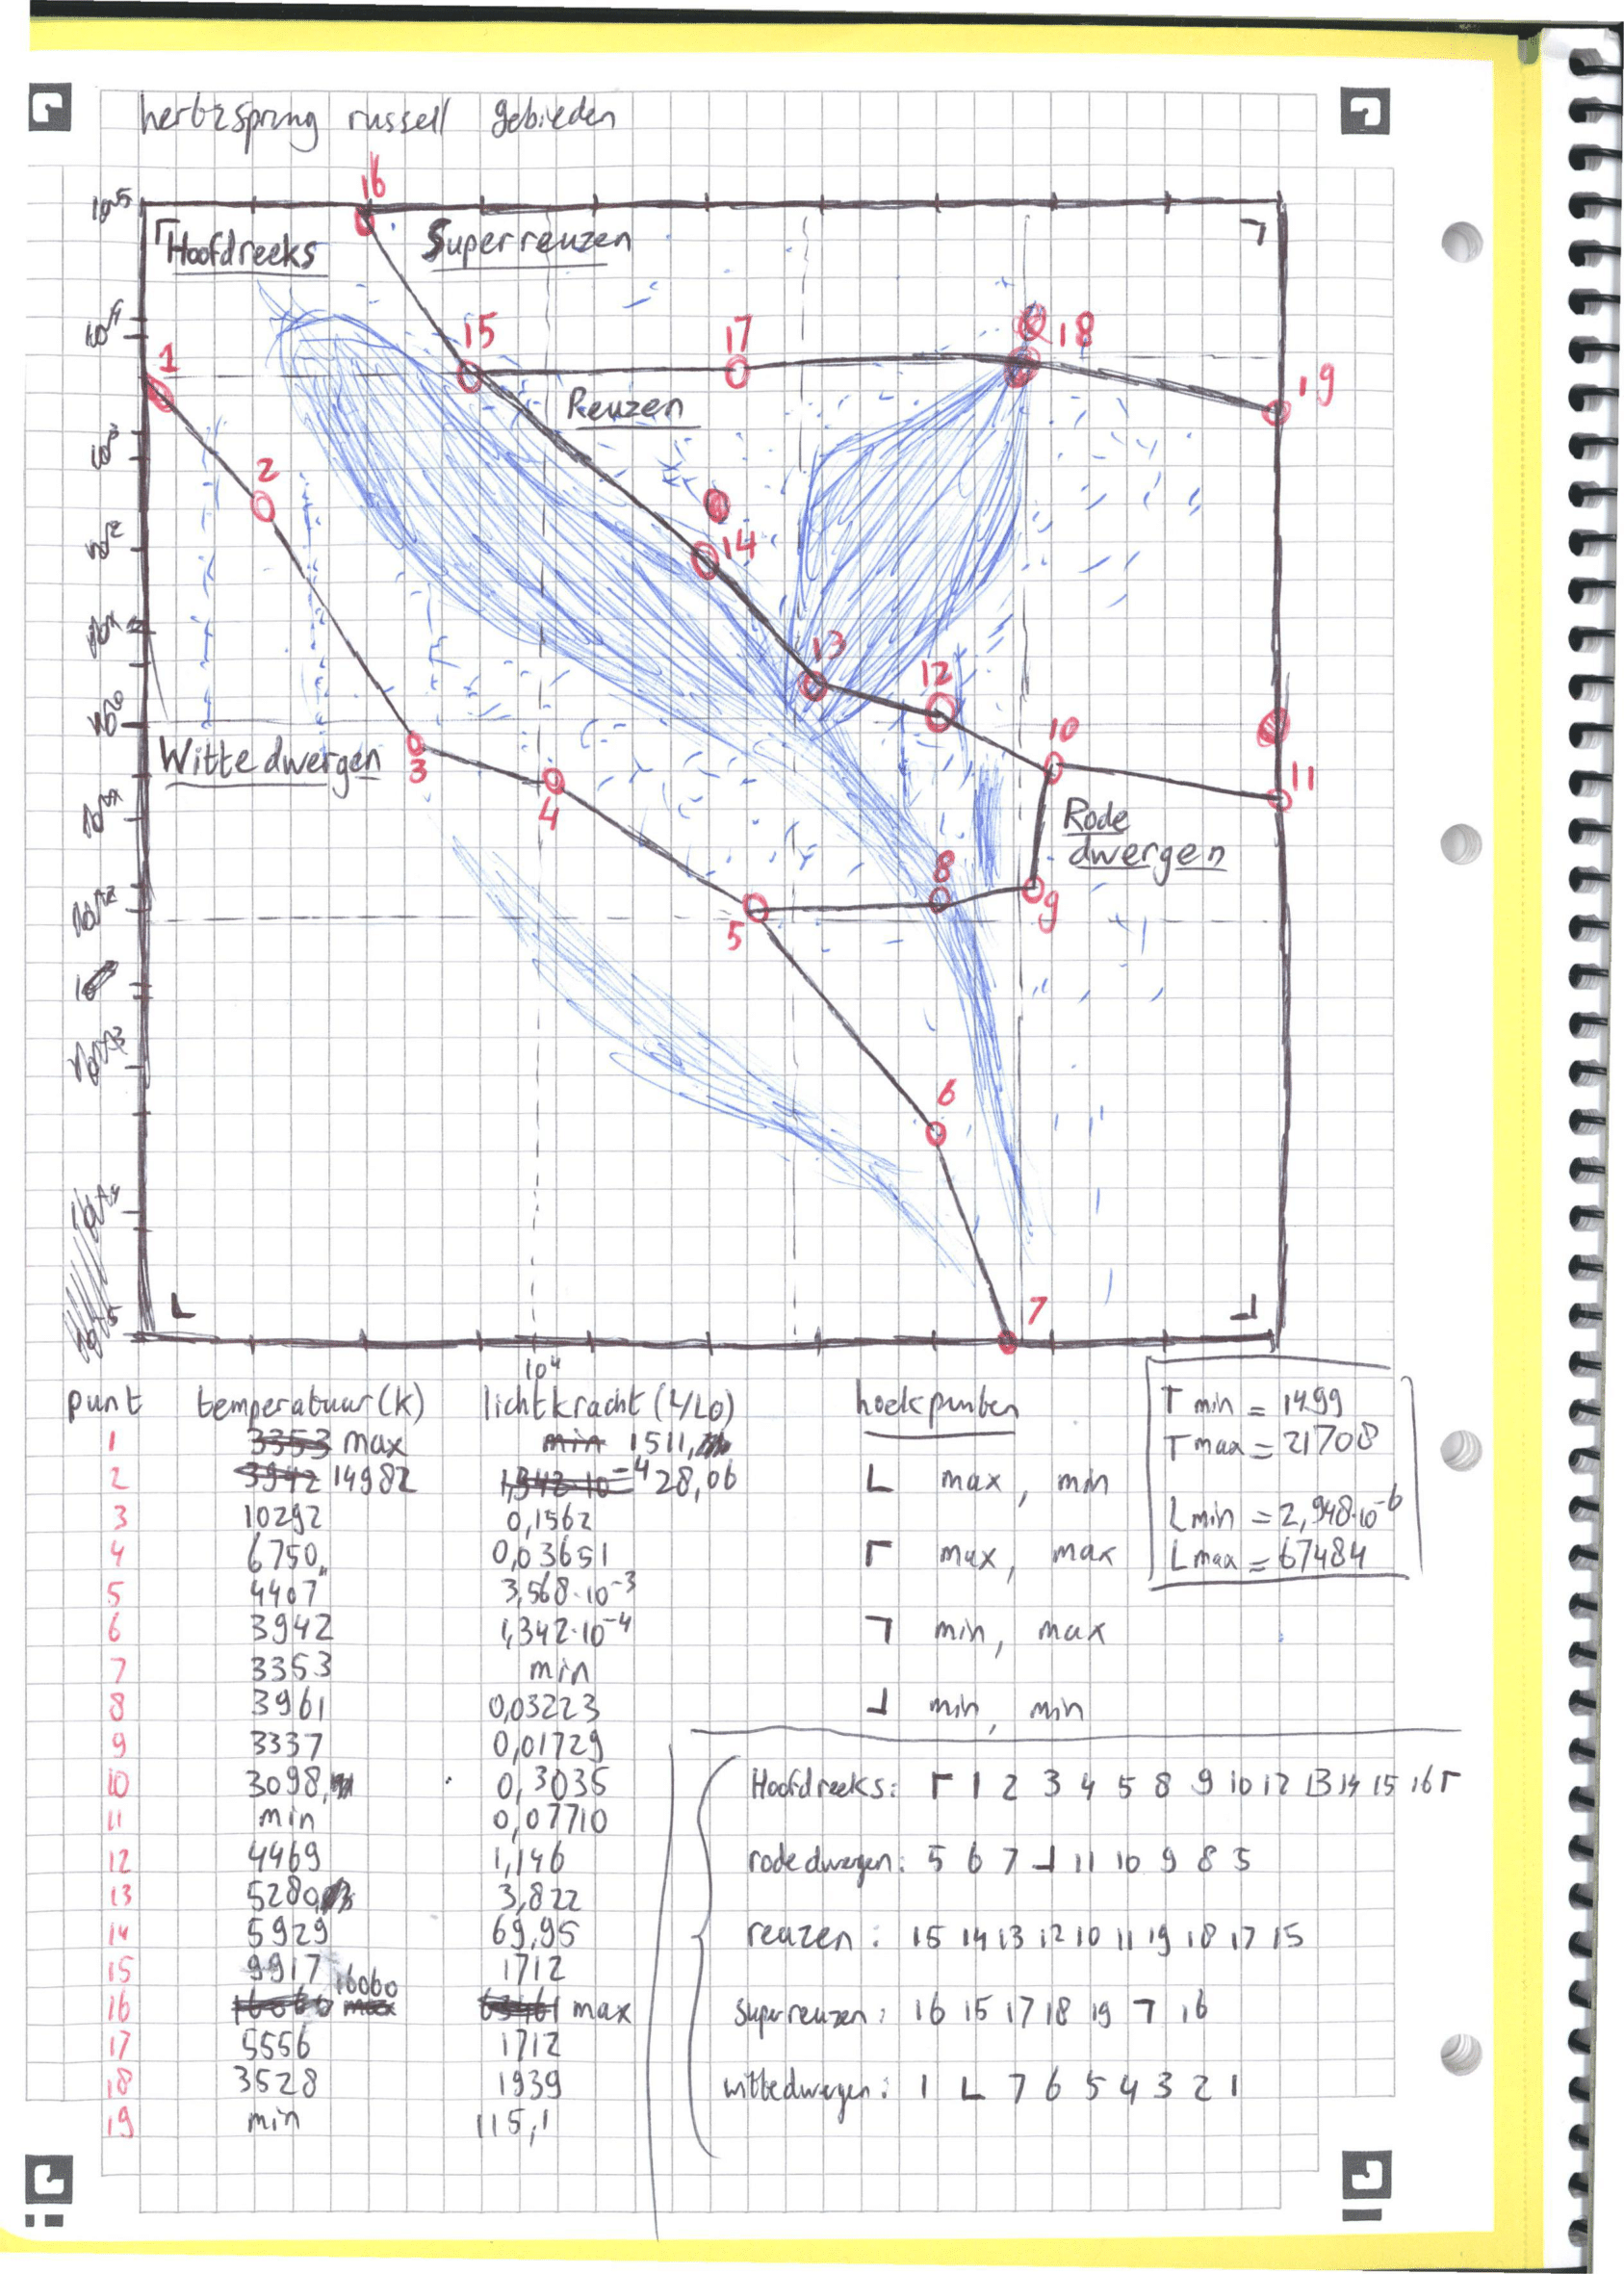 hertzsprung russell gebieden
16
10^5
Hoofdreeks
Superreuzen
10^4
15
17
18
1
19
Reuzen
10^3
2
10^2
14
13
12
10^0
10
Wittedwergen
3
11
4
Rode
dwergen
8
9
5
6
7
10^4
punt temperatuur(k) lichtkracht (L/L0) hoekpunten
1 3353 max min 1511,
2 3942 14982 1,342·10^-4 28,06
3 10292 0,1562
4 6750, 0,03651
5 4407 3,568·10^-3
6 3942 1,342·10^-4
7 3353 min
8 3961 0,03223
9 3337 0,01729
10 3098, 0,3035
11 min 0,07710
12 4469 1,146
13 5280, 3,822
14 5929 69,95
15 9917 1712
16 16060 max max
17 5556 1712
18 3528 1939
19 min 115,1
L max, min
Γ max, max
ㄱ min, max
┘ min, min
T min = 1499
T max = 21708
L min = 2,948·10^-6
L max = 67484
Hoofdreeks: Γ 1 2 3 4 5 8 9 10 12 13 14 15 16 Γ
rode dwergen: 5 6 7 ┘ 11 10 9 8 5
reuzen: 15 14 13 12 10 11 19 18 17 15
superreuzen: 16 15 17 18 19 ㄱ 16
wittedwergen: 1 L 7 6 5 4 3 2 1